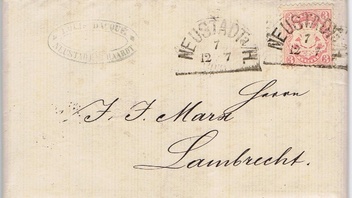 NEUSTADT a/H.
7
12 7
NEUSTADT a/H.
7
12 7
3 3
Herrn
J. J. Marx
Lambrecht.